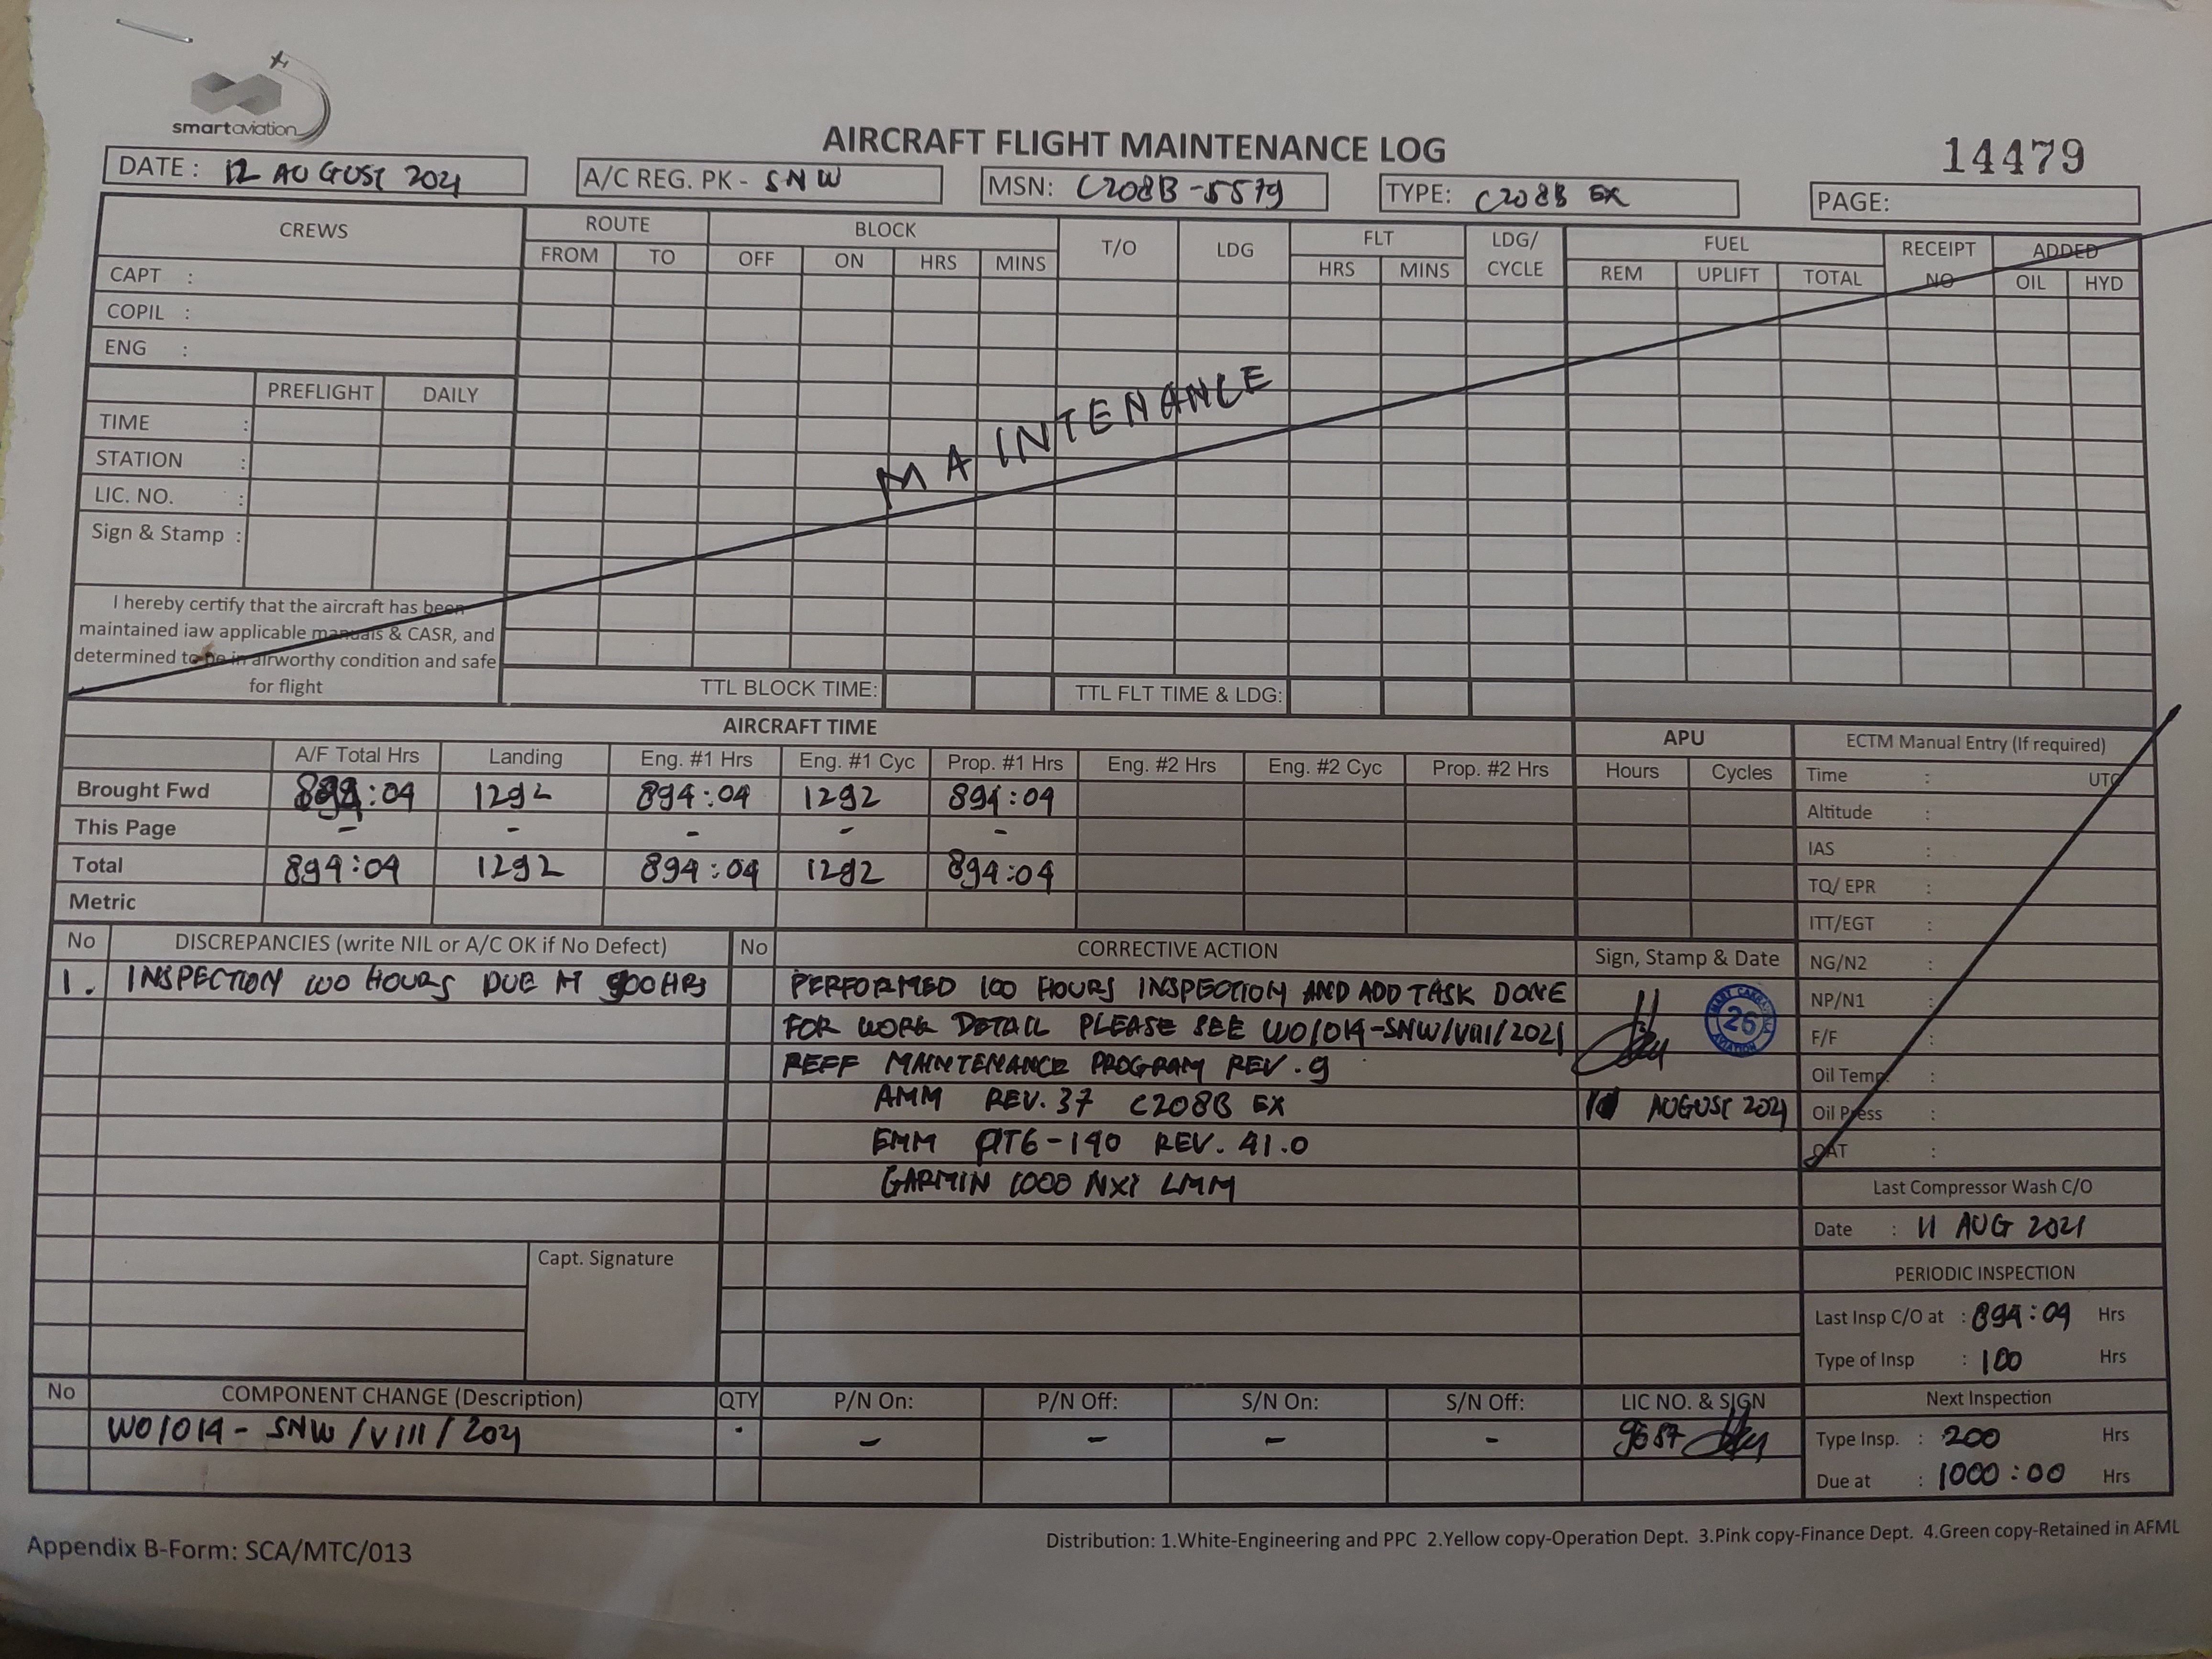 smartaviation
AIRCRAFT FLIGHT MAINTENANCE LOG
14479
DATE : 12 AUGUST 2021
A/C REG. PK - SNW
MSN: C208B-5579
TYPE: C208B EX
PAGE:
CREWS
ROUTE
BLOCK
T/O
LDG
FLT
LDG/
CYCLE
FUEL
RECEIPT
NO
ADDED
FROM TO OFF ON HRS MINS HRS MINS REM UPLIFT TOTAL OIL HYD
CAPT :
COPIL :
ENG :
PREFLIGHT DAILY
TIME :
STATION :
LIC. NO. :
Sign & Stamp :
MAINTENANCE
I hereby certify that the aircraft has been
maintained iaw applicable manuals & CASR, and
determined to be in airworthy condition and safe
for flight
TTL BLOCK TIME:
TTL FLT TIME & LDG:
AIRCRAFT TIME
APU
ECTM Manual Entry (If required)
A/F Total Hrs Landing Eng. #1 Hrs Eng. #1 Cyc Prop. #1 Hrs Eng. #2 Hrs Eng. #2 Cyc Prop. #2 Hrs Hours Cycles
Brought Fwd 894:04 1292 894:04 1292 894:04
This Page - - - - -
Total 894:04 1292 894:04 1292 894:04
Metric
Time : UTC
Altitude :
IAS :
TQ/ EPR :
ITT/EGT :
NG/N2 :
NP/N1 :
F/F :
Oil Temp. :
Oil Press :
OAT :
No DISCREPANCIES (write NIL or A/C OK if No Defect) No CORRECTIVE ACTION Sign, Stamp & Date
1. INSPECTION 100 HOURS DUE AT 900 HRS
PERFORMED 100 HOURS INSPECTION AND ADD TASK DONE
FOR WORK DETAIL PLEASE SEE WO/014-SNW/VIII/2021
REFF MAINTENANCE PROGRAM REV. 9
AMM REV. 37 C208B EX
EMM PT6-140 REV. 41.0
GARMIN 1000 NXI LMM
26
AVIATION
AUGUST 2021
Capt. Signature
Last Compressor Wash C/O
Date : 11 AUG 2021
PERIODIC INSPECTION
Last Insp C/O at : 894:04 Hrs
Type of Insp : 100 Hrs
Next Inspection
Type Insp. : 200 Hrs
Due at : 1000:00 Hrs
No COMPONENT CHANGE (Description) QTY P/N On: P/N Off: S/N On: S/N Off: LIC NO. & SIGN
WO/014- SNW/VIII/2021 - - - - - 9657
Appendix B-Form: SCA/MTC/013
Distribution: 1.White-Engineering and PPC 2.Yellow copy-Operation Dept. 3.Pink copy-Finance Dept. 4.Green copy-Retained in AFML